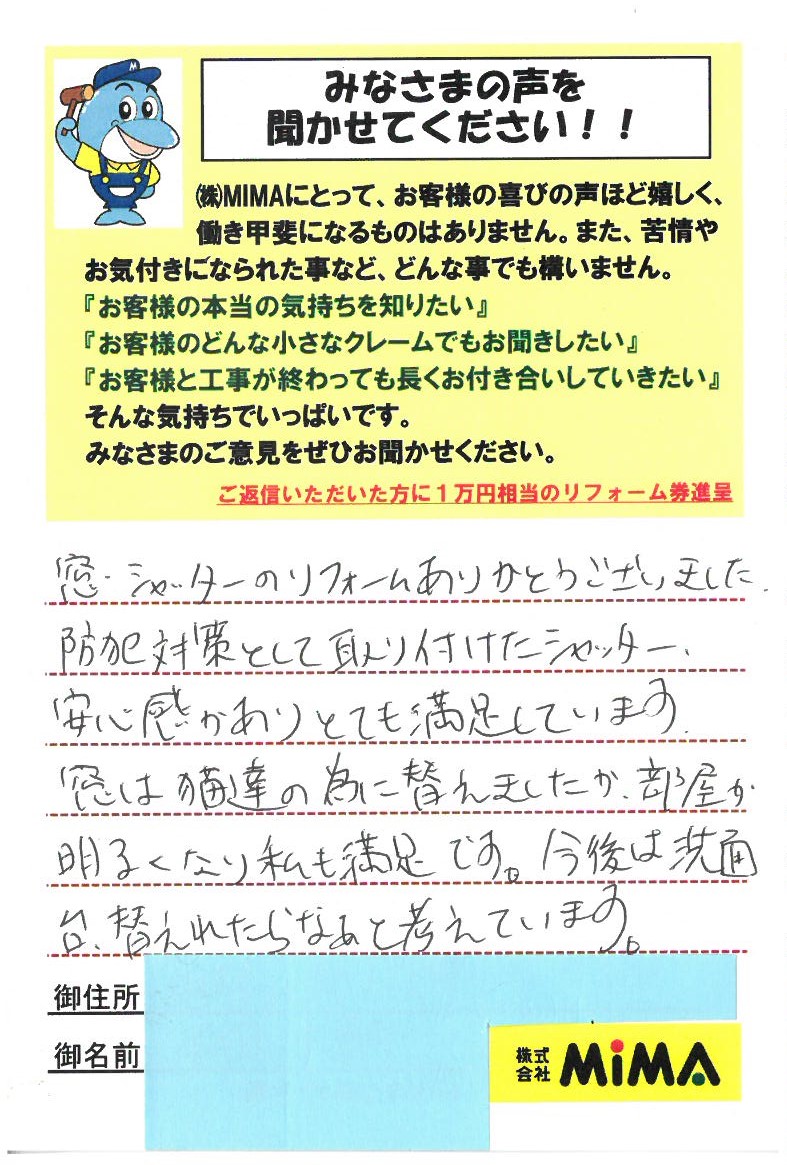 みなさまの声を
聞かせてください！！
㈱MIMAにとって、お客様の喜びの声ほど嬉しく、
働き甲斐になるものはありません。また、苦情や
お気付きになられた事など、どんな事でも構いません。
『お客様の本当の気持ちを知りたい』
『お客様のどんな小さなクレームでもお聞きしたい』
『お客様と工事が終わっても長くお付き合いしていきたい』
そんな気持ちでいっぱいです。
みなさまのご意見をぜひお聞かせください。
ご返信いただいた方に１万円相当のリフォーム券進呈
窓・シャッターのリフォームありがとうございました.
防犯対策として取り付けたシャッター、
安心感がありとても満足しています.
窓は猫達の為に替えましたが、部屋が
明るくなり私も満足です。今後は洗面
台、替えれたらなぁと考えています。
御住所
御名前
株式会社 MiMA
M